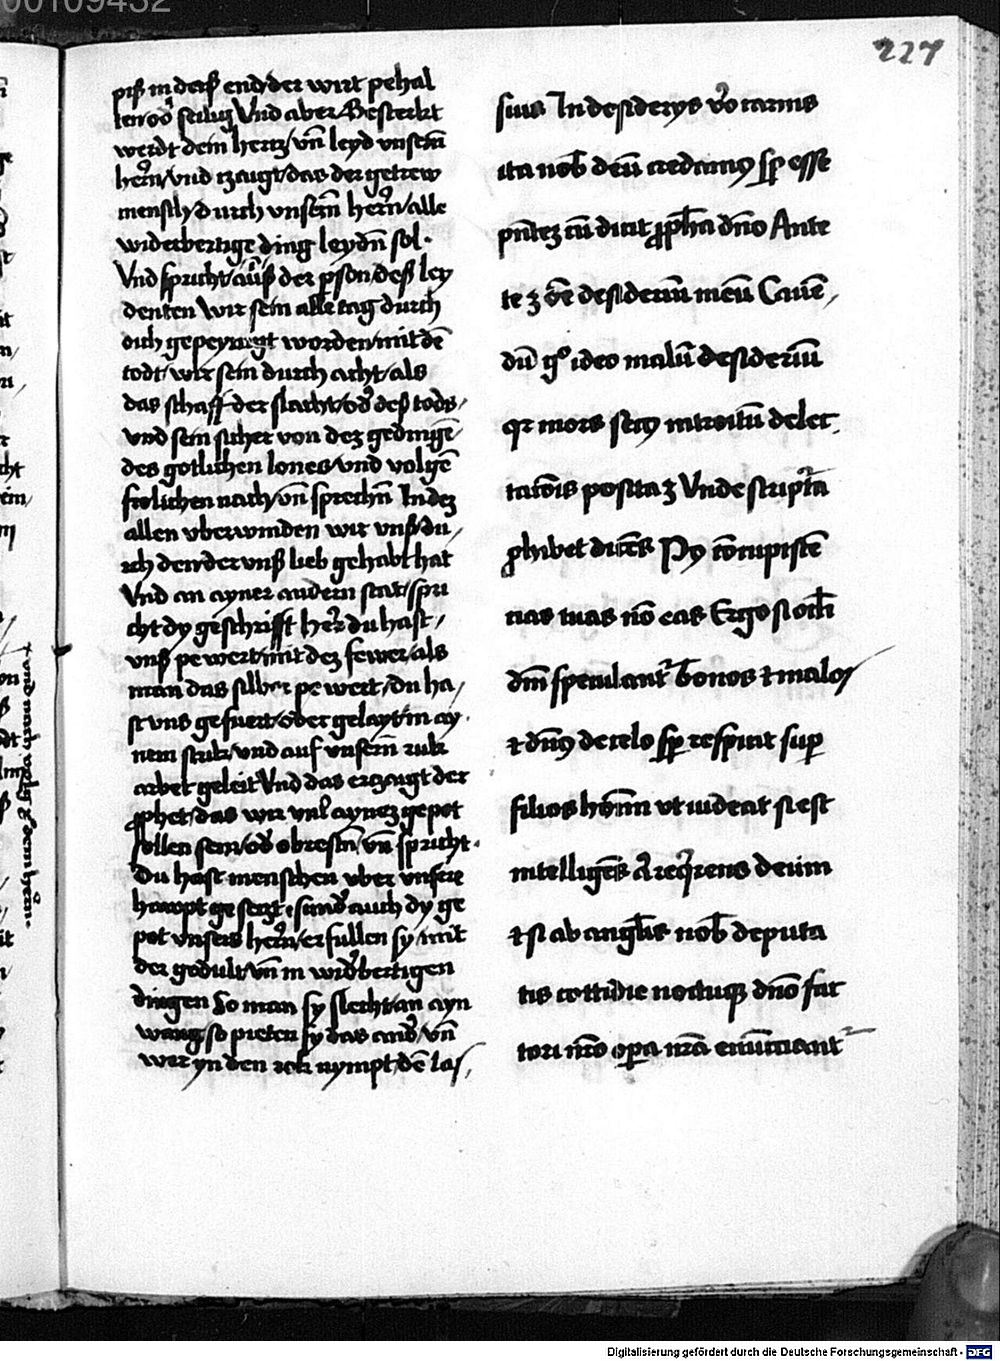 00109432
227
piß in daß end der wirt pehal
ten od̾ selig Vnd aber Besterkt
werdt dein hertz / vn̄ leyd vnsern̄
hern̄ / vnd tzaigt / das der getrew
mensch / durch vnsern̄ hern̄ / alle
widerbertige ding leydn̄ sol .
Vnd spricht / auß der pson / deß ley
denten Wir sein alle tag durch
dich gepeynigt worden / mit dē
todt / wir sein durch acht / als
das schaff der slacht / od̾ deß tods /
vnd sein sicher von dez gedingē
des gotlichen lones / vnd volgē
frolichen nach / vn̄ sprechn̄ In dez
allen vberwinden wir vnß / du /
rch den der vnß lieb gehabt hat
Vnd an ayner andern stat / spri
cht dy geschrifft her̄ du hast /
vnß pewert / mit dez fewer / als
man das silber pewert / du ha /
st vns gefuert / ober gelayt / in ay .
nem strik / vnd auf vnsern̄ ruk
arbet geleit Vnd das ertzaigt der
ꝓphet / das wir vnt̾ aynez gepot
sollen sein / od̾ obrestn̄ / vn̄ spricht .
Du hast menschen vber vnsere
hawpt gesetzt . sund̾ auch dy ge
pot vnsers hern̄ / erfullen sy / mit
der gedult / vn̄ in wid̾bertigen
dingen So man sy slecht / an ayn
wang / so pieten sy das and̾ / vn̄
wer yn den rok nympt / dē las / ,
suis In desiderijs v̾o carnis
ita nob̄ deū credamꝰ sꝑ esse
pn̄tez cū dicit ꝓph̄a dn̄o Ante
te ꝫ ōe desideriū meū Cauē ,
dū gͦ ideo malū desideriū
qr mors secꝰ introitū delec ,
tac̄ōis posita ꝫ Vnde sc̾ptͣa
ꝓhibet dicēs Pꝰ c̄ocupiscē
cias tuas nō eas Ergo si oc̄li
dn̄i speculantᷣ bonos ⁊ malos
⁊ dn̄s de celo sꝑ respicit suꝑ
filios hoīm vt uideat si est
intelligēs aͭ reqͥrens deum
⁊ si ab angl̄is nob̄ deputa
tis cottidie noctuqꝫ dn̄o fac
tori nr̄o oꝑa nr̄a enūcciantᷣ
Digitalisierung gefördert durch die Deutsche Forschungsgemeinschaft - DFG